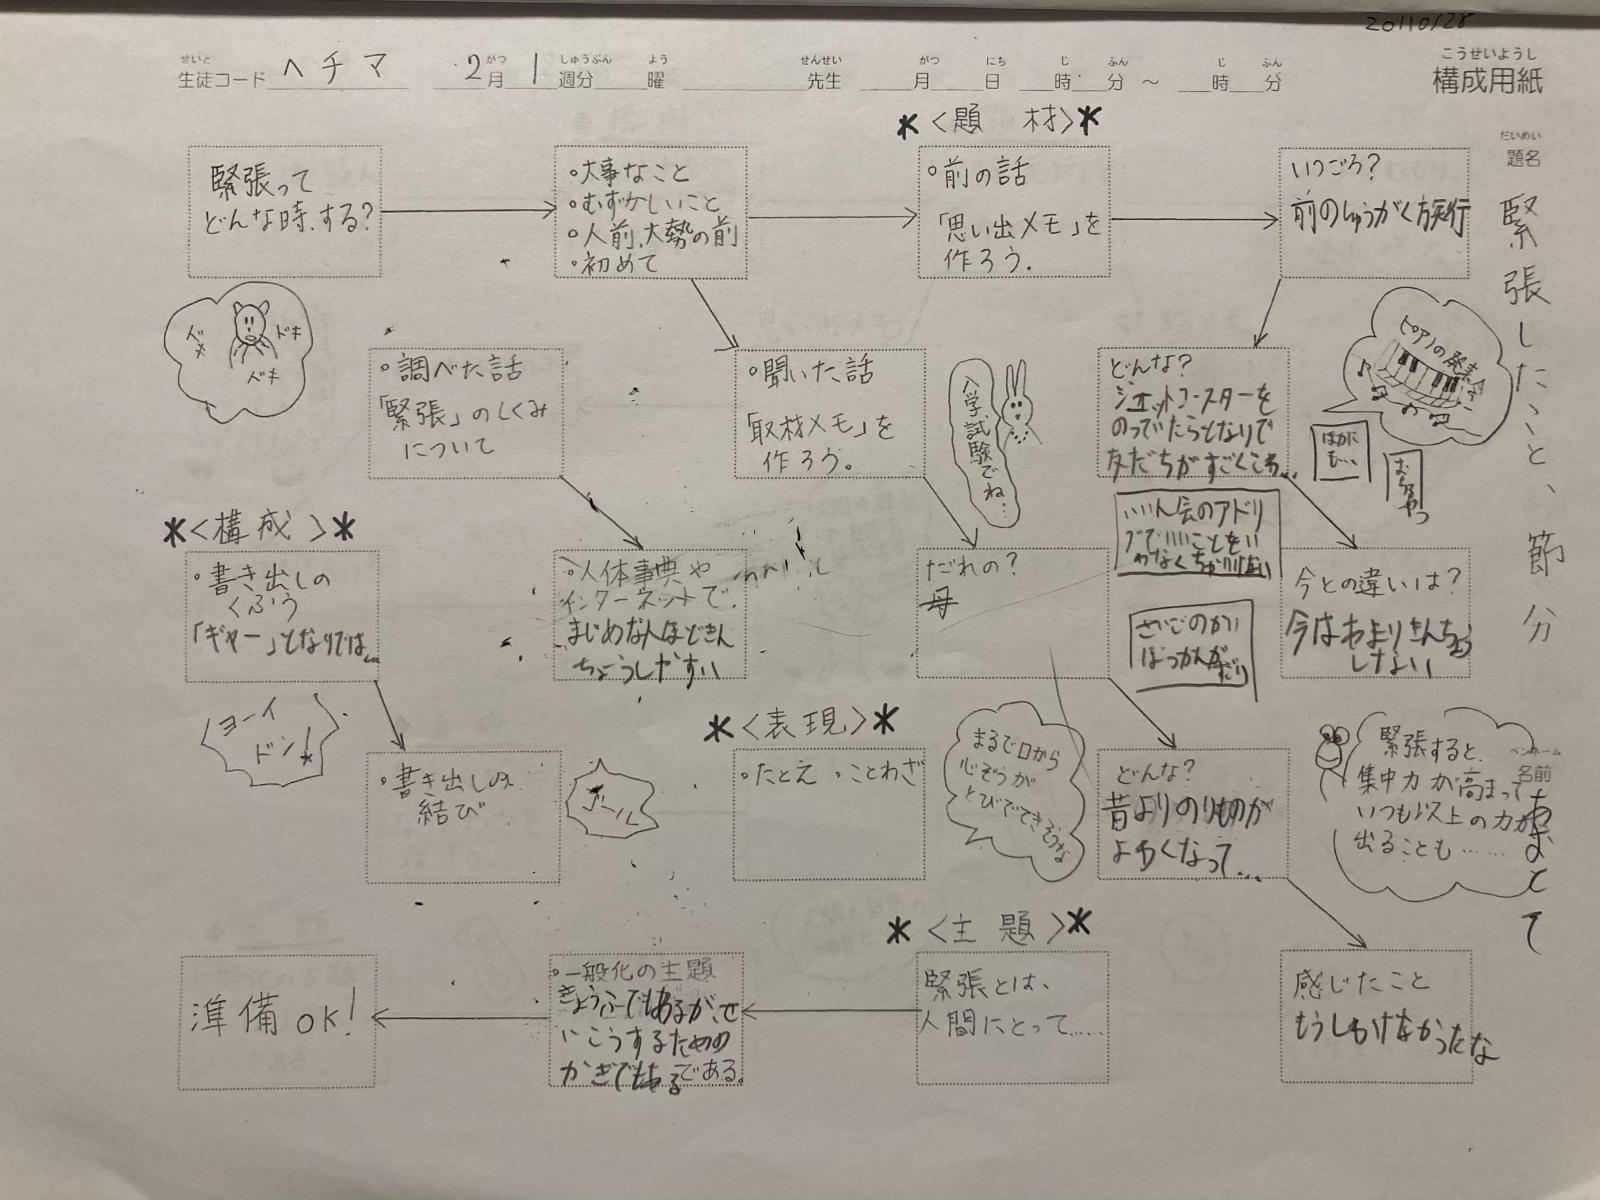 20110128
こうせいようし
構成用紙
せいと
生徒コード ヘチマ
がつ しゅうぶん よう
2月 1週分 曜
せんせい
先生
がつ にち じ ふん じ ふん
月 日 時 分 ～ 時 分
だいめい
題名
緊張したこと、節分
ペンネーム
名前
＊〈題 材〉＊
緊張って
どんな時、する?
・大事なこと
・むずかしいこと
・人前、大勢の前
・初めて
・前の話
「思い出メモ」を
作ろう.
いつごろ?
前のしゅうがく旅行
ドキ
ドキ
ドキ
・調べた話
「緊張」のしくみ
について
・聞いた話
「取材メモ」を
作ろう。
入学試験でね…
どんな?
ジェットコースターを
のってたらとなりで
友だちがすごくこわ…
ピアノの発表会
ほかに
も…
いいん会のアドリ
ブでいいことをい
わなくちゃいけない
＊〈構成〉＊
・書き出しの
くふう
「ギャー」となりでは…
・人体事典や
インターネットで.
まじめな人ほどきん
ちょうしやすい
だれの?
母
さいごのかい
今との違いは?
今はあまりきんちょう
しない
ヨーイ
ドン!
・書き出しの
結び
ゴール
＊〈表現〉＊
・たとえ ・ことわざ
まるで口から
心ぞうが
とびでてきそうな
どんな?
昔よりのりものが
よわくなって…
緊張すると、
集中力が高まって
いつも以上の力が
出ることも……
＊〈主 題〉＊
準備OK!
・一般化の主題
きょうふでもあるが、せ
いこうするための
かぎでもあるである。
緊張とは、
人間にとって……
感じたこと
もうしわけなかったな